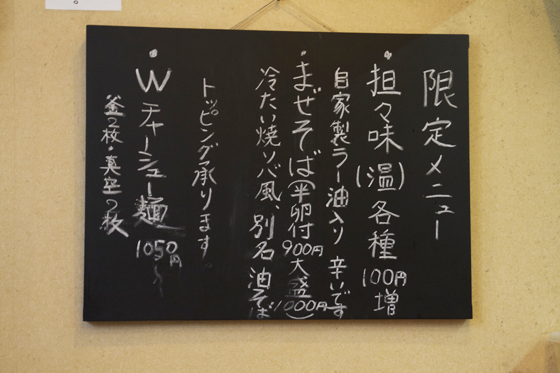 限定メニュー
・担々味(温)各種100円増
自家製ラー油入り 辛いです
・まぜそば(半卵付900円大盛1000円)
冷たい焼ソバ風、別名 油そば
トッピング承ります。
・Wチャーシュー麺 1050円〜
釜2枚・真空2枚